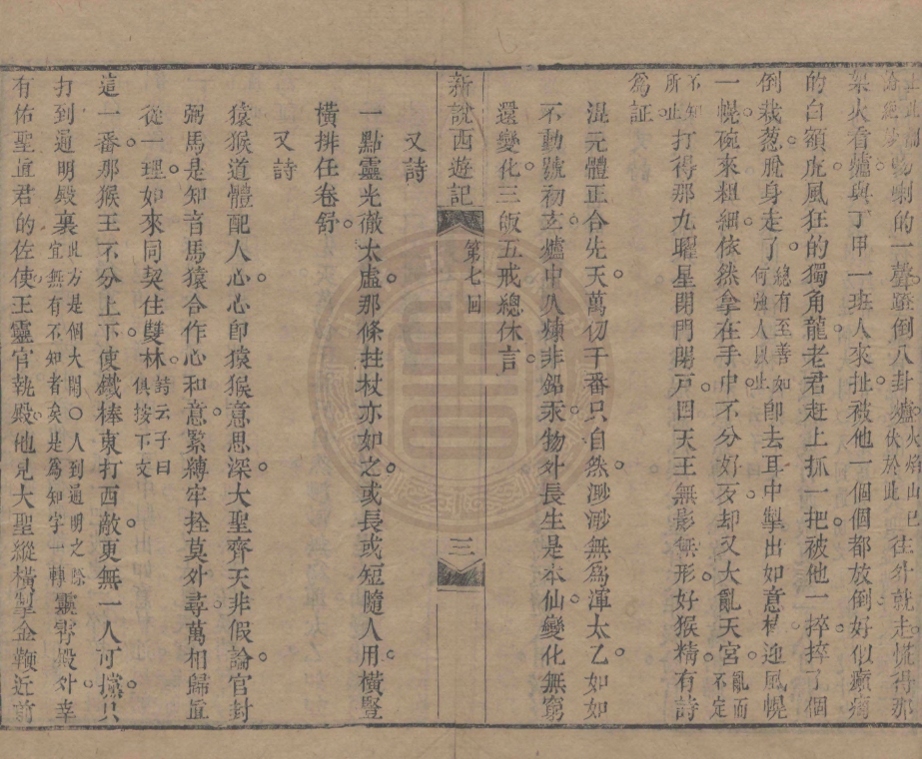 唿喇的一聲蹬倒八卦爐火焰山已伏於此往外就走慌得那
架火看爐與丁甲一班人來扯被他一個個都放倒好似癲癇
的白額虎風狂的獨角龍老君趕上抓一把被他一捽捽了個
倒栽葱脫身走了總有至善如何強人以止即去耳中掣出如意棒迎風幌
一幌碗來粗細依然拿在手中不分好歹却又大亂天宮亂而不定
不知所止打得那九曜星閉門閉戶四天王無影無形好猴精有詩
爲証
混元體正合先天萬劫千番只自然渺渺無爲渾太乙如如
不動號初玄爐中久煉非鉛汞物外長生是本仙變化無窮
還變化三皈五戒總休言
新說西遊記 第七回 三
又詩
一點靈光徹太虛那條拄杖亦如之或長或短隨人用橫豎
橫排任卷舒
又詩
猿猴道體配人心心卽猿猴意思深大聖齊天非假論官封
弼馬是知音馬猿合作心和意緊縛牢拴莫外尋萬相歸眞
從一理如來同契住雙林詩云子曰俱按下文
這一番那猴王不分上下使鐵棒東打西敵更無一人可攩只
打到通明殿裏此方是個大鬧○人到通明之際宜無有不知者矣是爲知字一轉靈霄殿外幸
有佑聖眞君的佐使王靈官執殿他見大聖縱橫掣金鞭近前